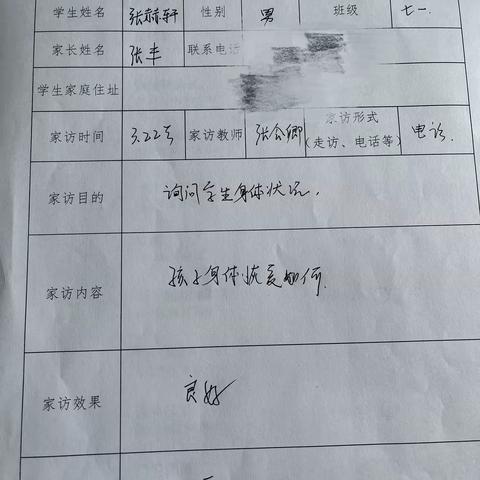 学生姓名 张赫轩 性别 男 班级 七一.
家长姓名 张丰 联系电话
学生家庭住址
家访时间 3.22号 家访教师 张会卿 家访形式（走访、电话等） 电访.
家访目的 询问学生身体状况.
家访内容 孩子身体恢复如何.
家访效果 良好